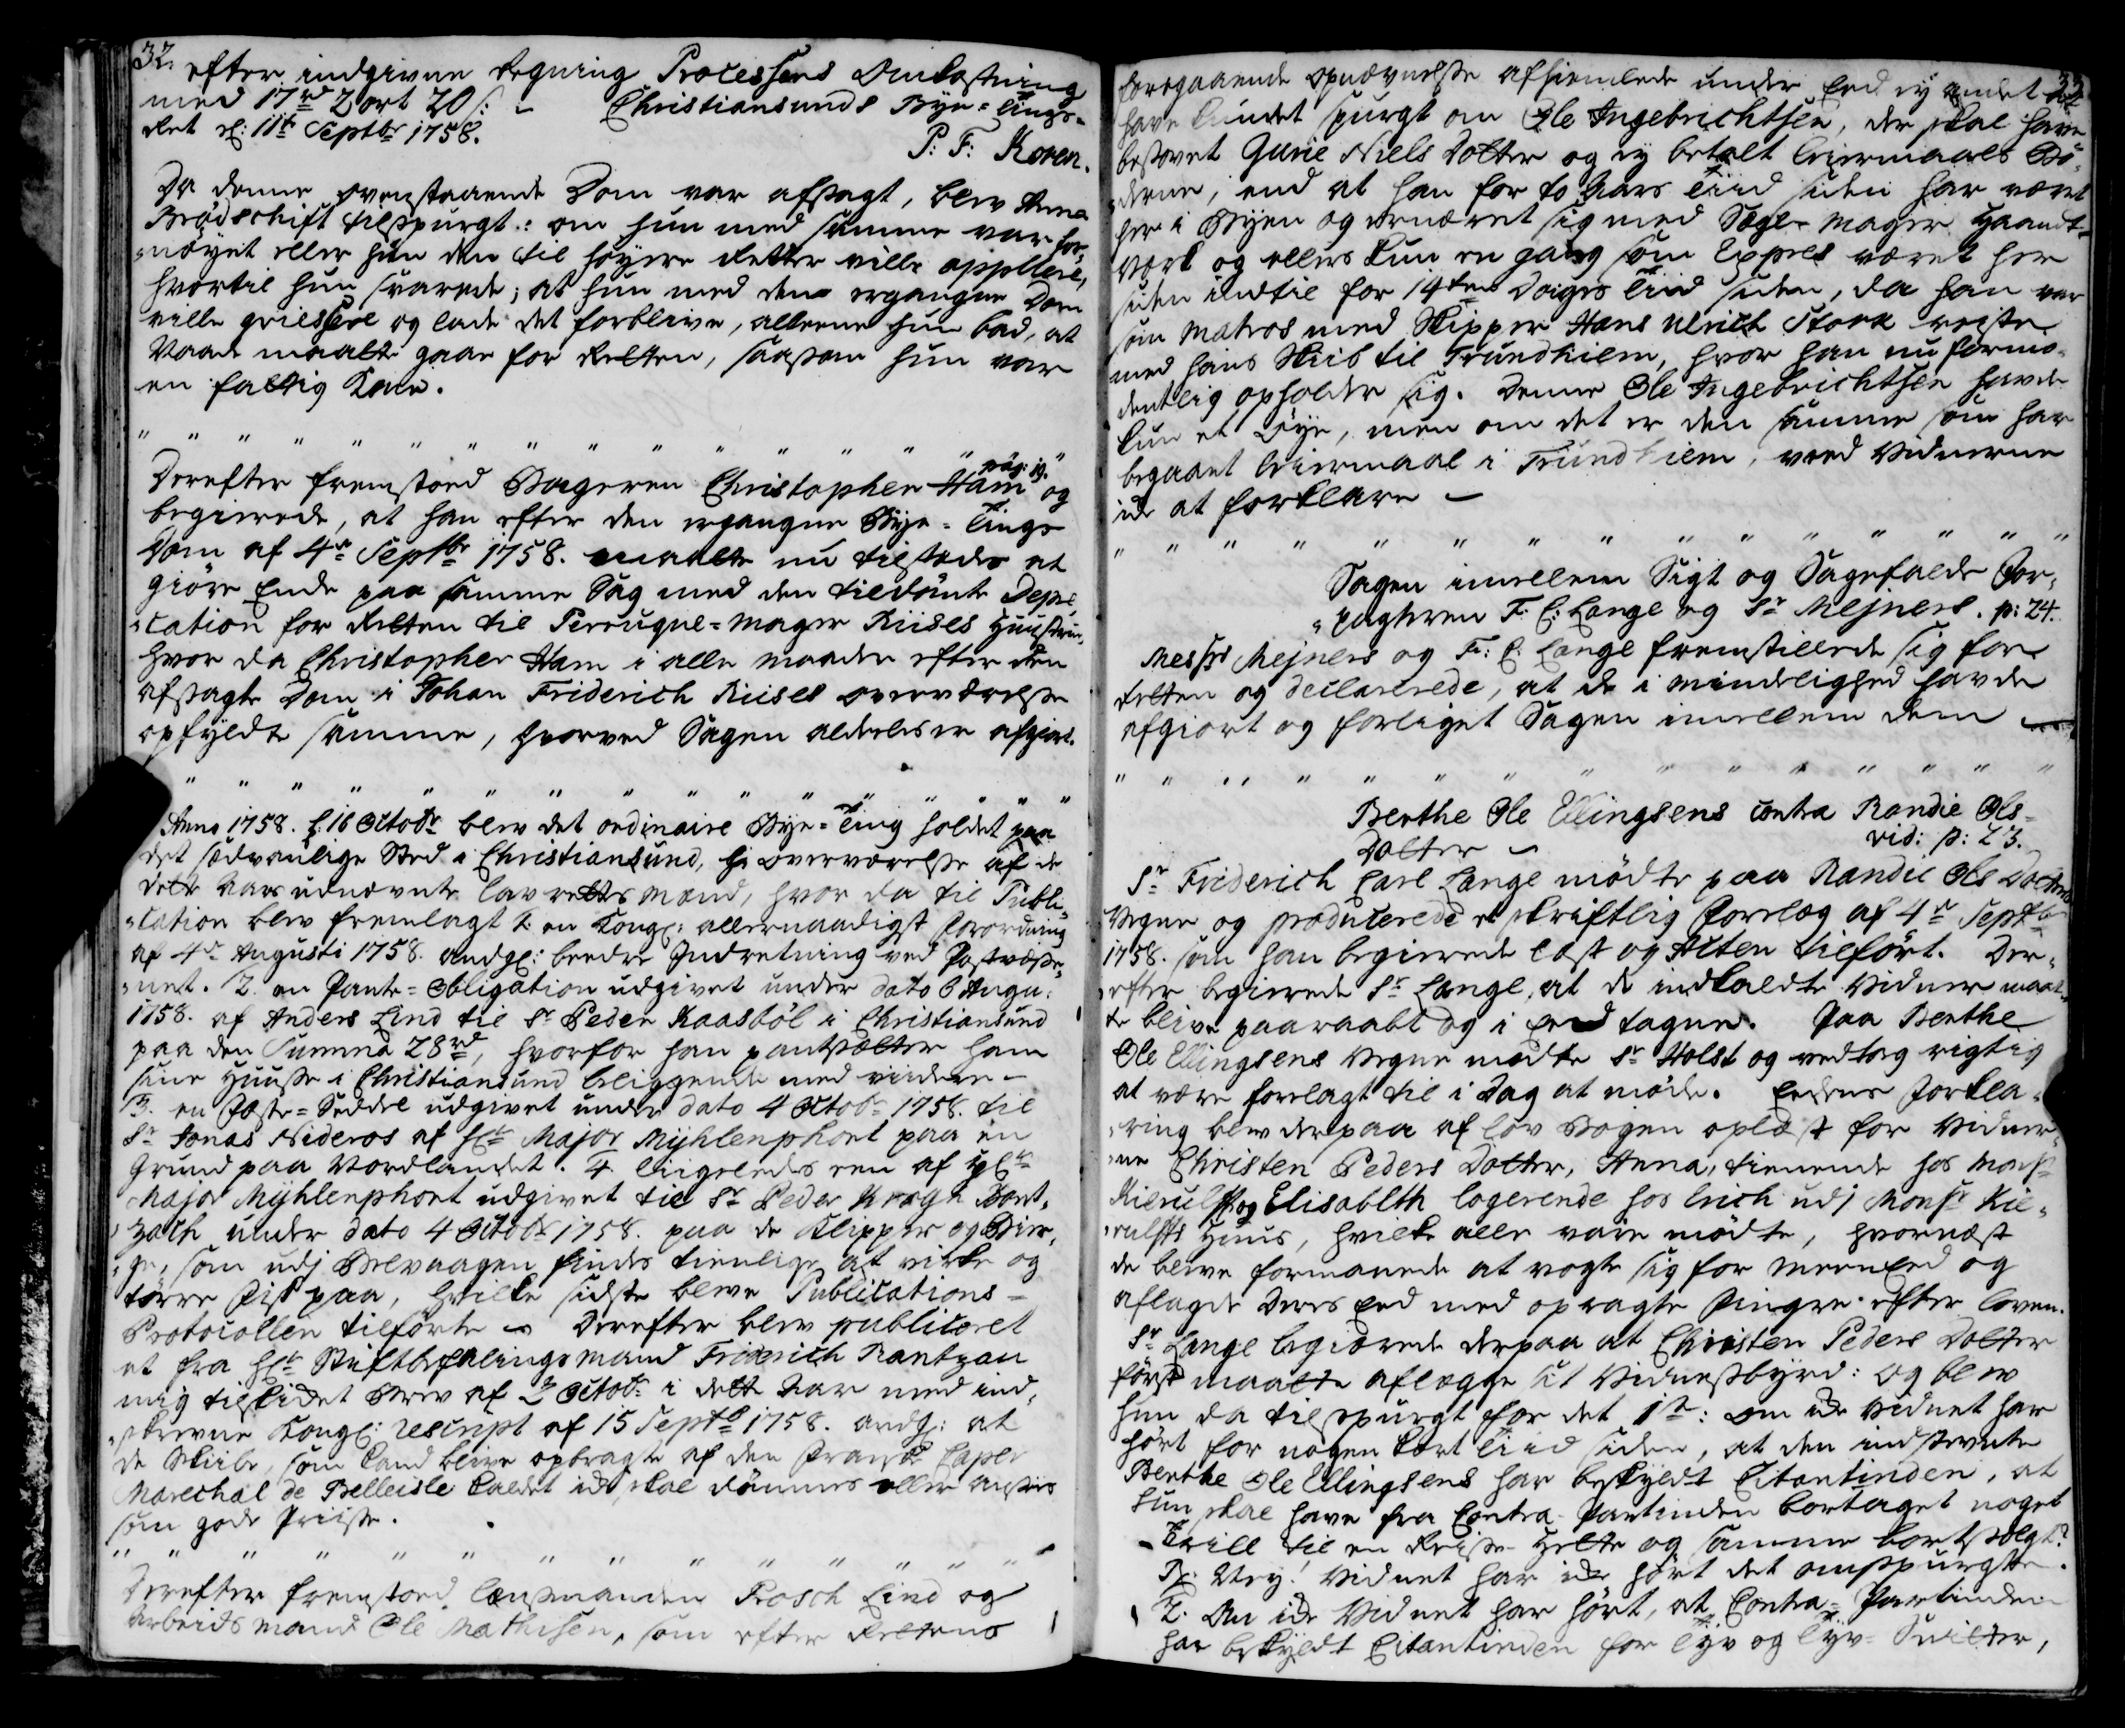 32.
efter indgivne Regning Processens Omkostning
med 17 rd 2 ort 20 s: - Christiansunds Bye-Tings-
Ret d: 11te Septbr 1758.
P: F: Koren.
Da denne ovenstaaende Dom var afsagt, blev Anna
Brødschift tilspurgt: om hun med samme var for-
nøyet eller hun den til høyere Retter ville appellere,
hvortil hun svarede; at hun med den ergangne Dom
ville qviescere og lade det forblive, alleene hun bad, at
Naade maatte gaae for Retten, saasom hun var
en fattig Kone.
" " " " " " " " " " " " " " "
pag: 19.
Derefter fremstoed Bageren Christopher Ham og
begierede, at han efter den ergangne Bye-Tings
Dom af 4de Septbr 1758. maatte nu tilstædes at
giöre Ende paa samme Sag med den tildömte Depre-
cation for Retten til Perruque-mager Riises Huustrue,
hvor da Christopher Ham i alle maader efter den
afsagte Dom i Johan Friderich Riises overværelse
opfyldte samme, hvorved Sagen alderles er afgiort.
" " " " " " " " " " " " " " "
Anno 1758. d: 16 Octobr blev det ordinaire Bye-Ting holdet paa
det sædvanlige Sted i Christiansund, i overværelse af de
dette Aar udnævnte lavrettes mænd, hvor da til Publi-
cation blev fremlagt 1. en Kongl: allernaadigst Forordning
af 4de Augusti 1758. andgl: beedre Indretning ved Postvæse-
net. 2. en Pante-Obligation udgivet under dato 6 Augu:
1758. af Anders Lind til Sr Peder Kaasböl i Christiansund
paa den Summa 28 rd, hvorfor han pantsætter ham
sine Huuse i Christiansund beliggende med viidere -
3. en Fæste-Seddel udgivet under dato 4 Octobr 1758. til
Sr Jonas Nideros af Hr Major Mÿhlenphort paa en
Grund paa Nordlandet. 4. ligeledes een af Hr
Major Mÿhlenphort udgivet til Sr Peder Kragh Dort-
zach under dato 4 Octobr 1758. paa de Klipper og Bier-
ge, som udj Bolvaagen findes tienlige at virke og
törre Fisk paa, hvilke sidste bleve Publications-
Protocollen tilförte - Derefter blev publiceret
et fra Hr Stiftbefalingsmand Friderich Rantzau
mig tilskikket Brev af 2 Octobr i dette Aar med ind-
skrevne Kongl: rescript af 15 Septbr 1758. andgl: at
de Skibe, som kand blive opbragte af den Franske Caper
Marechal de Belleisle kaldet icke skal dömmes eller ansees
som gode Priise.
" " " " " " " " " " " " " "
Derefter fremstoed Lensmanden Rosch Lind og
Arbeids mand Ole Mathisen, som efter Rettens
33
foregaaende opnævnelse afhiemlede under Eed ey andet at
have kundet spurgt om Ole Ingebrichtsen, der skal have
besovet Gurie Niels Dotter og ey betalt Leiermaals Bö-
derne, end at han for to Aars Tiid siden har været
her i Byen og ernæret sig med Segl-mager Haand-
værk og ellers kun en gang som Expres været her
siden indtil for 14ten Dages Tiid siden, da han var
som Matros med Skipper Hans Ulrich Stora reiste
med hans Skib til Trundhiem, hvor han nu formo-
dentlig opholder sig. Denne Ole Ingebrichtsen havde
kun et Öye, men om det er den samme som har
begaaet Leiermaal i Trundhiem, veed Vidnerne
icke at forklare -
" " " " " " " " " " " " " "
Sagen imellem Sigt og Sagefalds For-
pagteren F: C: Lange og Sr Mejners. p: 24.
Messrs Mejners og F: C: Lange fremstillede sig for
Retten og declarerede, at de i mindelighed havde
afgiort og forliget Sagen imellem dem -
" " " " " " " " " " " " " "
Berthe Ole Ellingsens contra Randie Ols-
Dotter - vid: p: 23.
Sr Friderich Carl Lange mödte paa Randie Ols Dotters
Vegne og producerede et skriftlig Forelæg af 4de Septbr
1758. som han begierede læst og Acten tilfört. Der-
efter begierede Sr Lange, at de indkaldte Vidner maat-
te blive paaraabt og i Eed tagne. Paa Berthe
Ole Ellingsens Vegne mödte Sr Holst og vedtog rigtig
at være forelagt til i Dag at möde. Eedens Forkla-
ring blev derpaa af Lov Bogen oplæst for Vidner-
ne Christen Peders Dotter, Anna, tienende hos Monsr
Kierulf og Elisabeth logerende hos Erich udj Monsr Kie-
rulffs Huus, hvilke alle vare mödte, hvornæst
de bleve formanede at vogte sig for Meeneed og
aflagde deres Eed med opragte Fingre efter loven.
Sr Lange begierede derpaa at Christen Peders Dotter
først maatte aflægge sit Vidnesbyrd: og blev
hun da tilspurgt for det 1te: om icke Vidnet har
hört for nogen kort Tiid siden, at den indstevnte
Berthe Ole Ellingsens har beskyldt Citantinden, at
hun skal have fra Contra-Partinden borttaget noget
Trill til en Reise-Hette og samme bortsolgt?
Rx: Ney! Vidnet har icke hört det omspurgte.
2. Om icke Vidnet har hört, at Contra-Partinden
har beskyldt Citantinden for Tyv og Tyv-